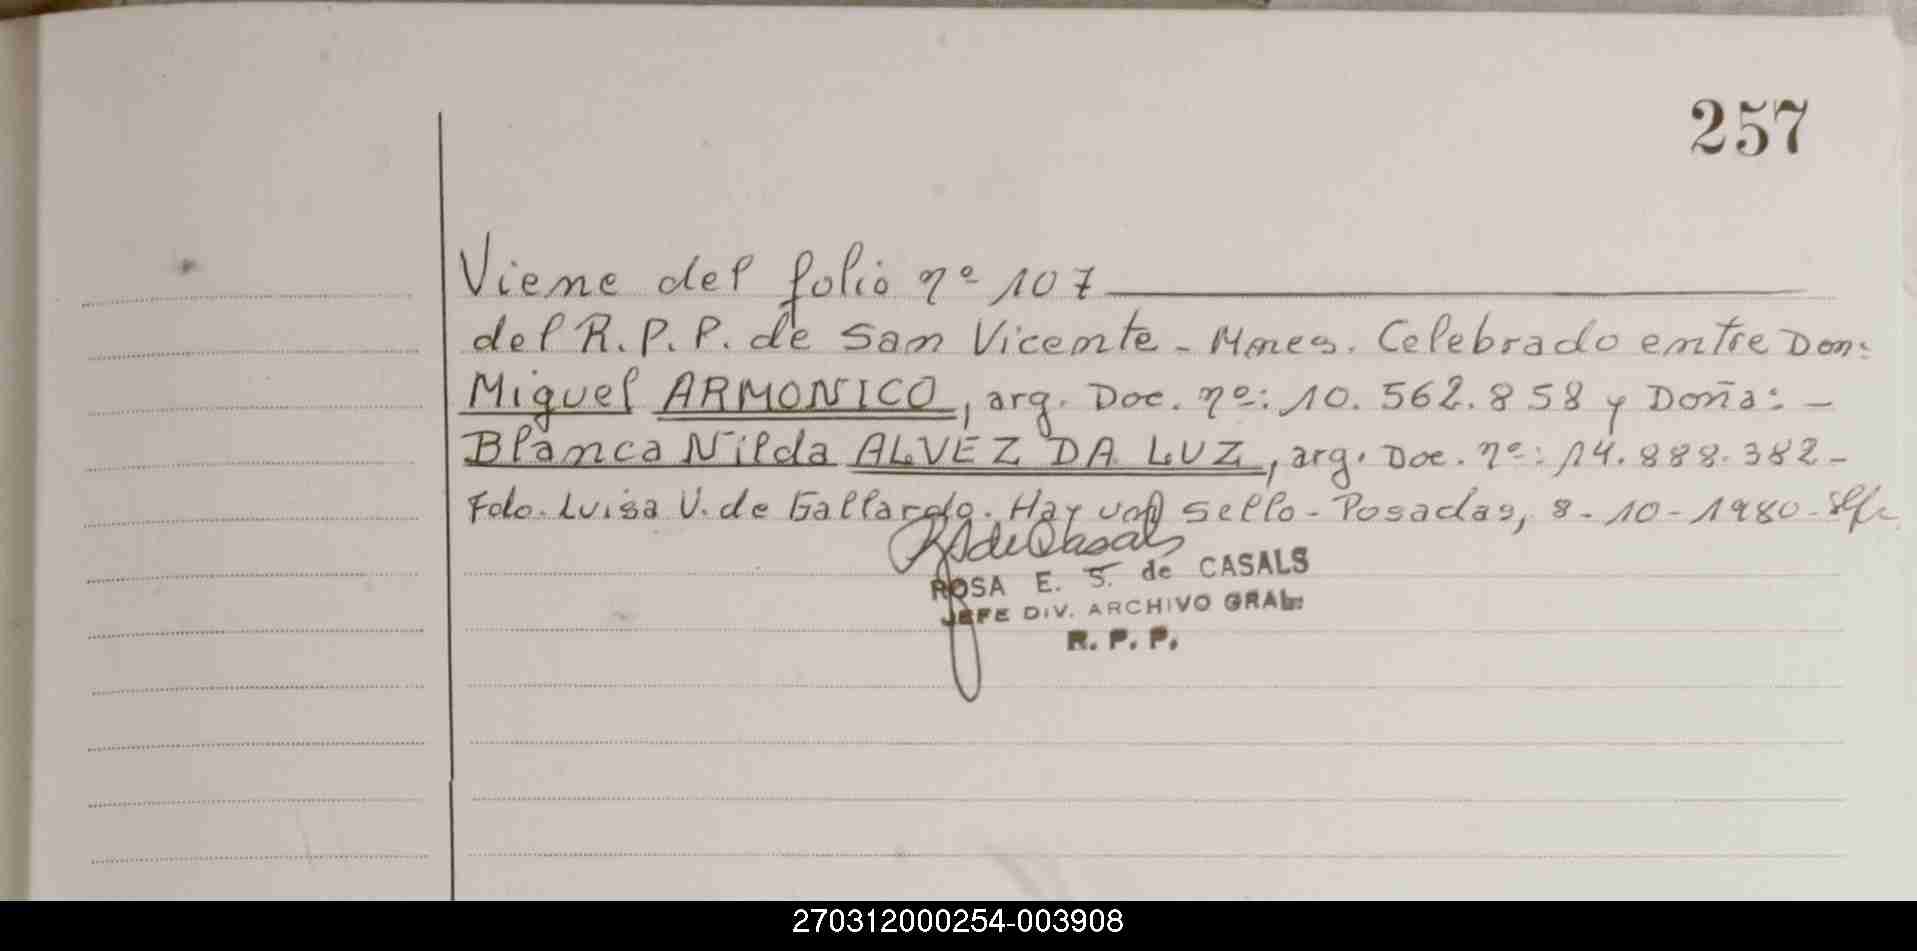 257
Viene del folio nº 107
del R.P.P. de San Vicente - Mnes. Celebrado entre Don:
Miguel ARMONICO, arg. Doc. nº: 10.562.858 y Doña: -
Blanca Nilda ALVEZ DA LUZ, arg. Doc. nº: 14.888.382-
Fdo. Luisa V. de Gallardo. Hay un sello - Posadas, 8-10-1980-
ROSA E. S. de CASALS
JEFE DIV. ARCHIVO GRAL.
R. P. P.
270312000254-003908